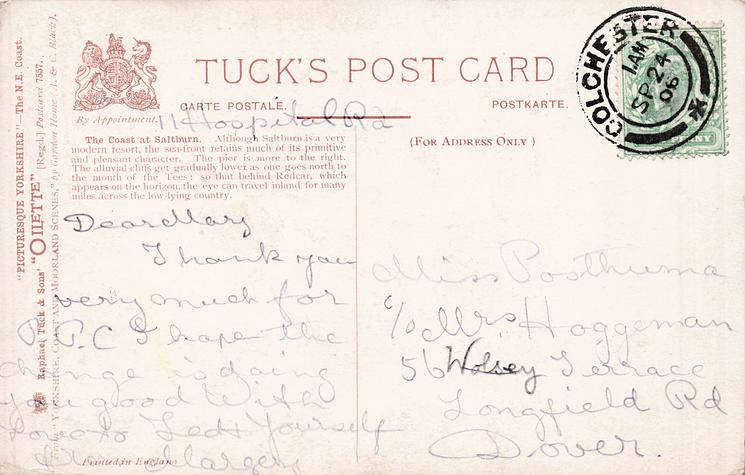 "PICTURESQUE YORKSHIRE"—The N.E. Coast.
Raphael Tuck & Sons' "OILETTE" [Regd.] Postcard 7557.
From "YORKSHIRE, COAST AND MOORLAND SCENES," by Gordon Home (A. & C. Black).
By Appointment.
TUCK'S POST CARD
CARTE POSTALE. POSTKARTE.
(FOR ADDRESS ONLY)
COLCHESTER
1 AM
SP 24
06
11 Hospital Rd
The Coast at Saltburn. Although Saltburn is a very
modern resort, the sea-front retains much of its primitive
and pleasant character. The pier is more to the right.
The alluvial cliffs get gradually lower as one goes north to
the mouth of the Tees; so that behind Redcar, which
appears on the horizon, the eye can travel inland for many
miles across the low-lying country.
Dear Mary
I thank you
very much for
P.C I hope the
change is doing
you good With
love to Ted & Yourself
from
Printed in England
Miss Posthuma
c/o Mrs Hoggeman
56 Wolsey Terrace
Longfield Rd
Dover.